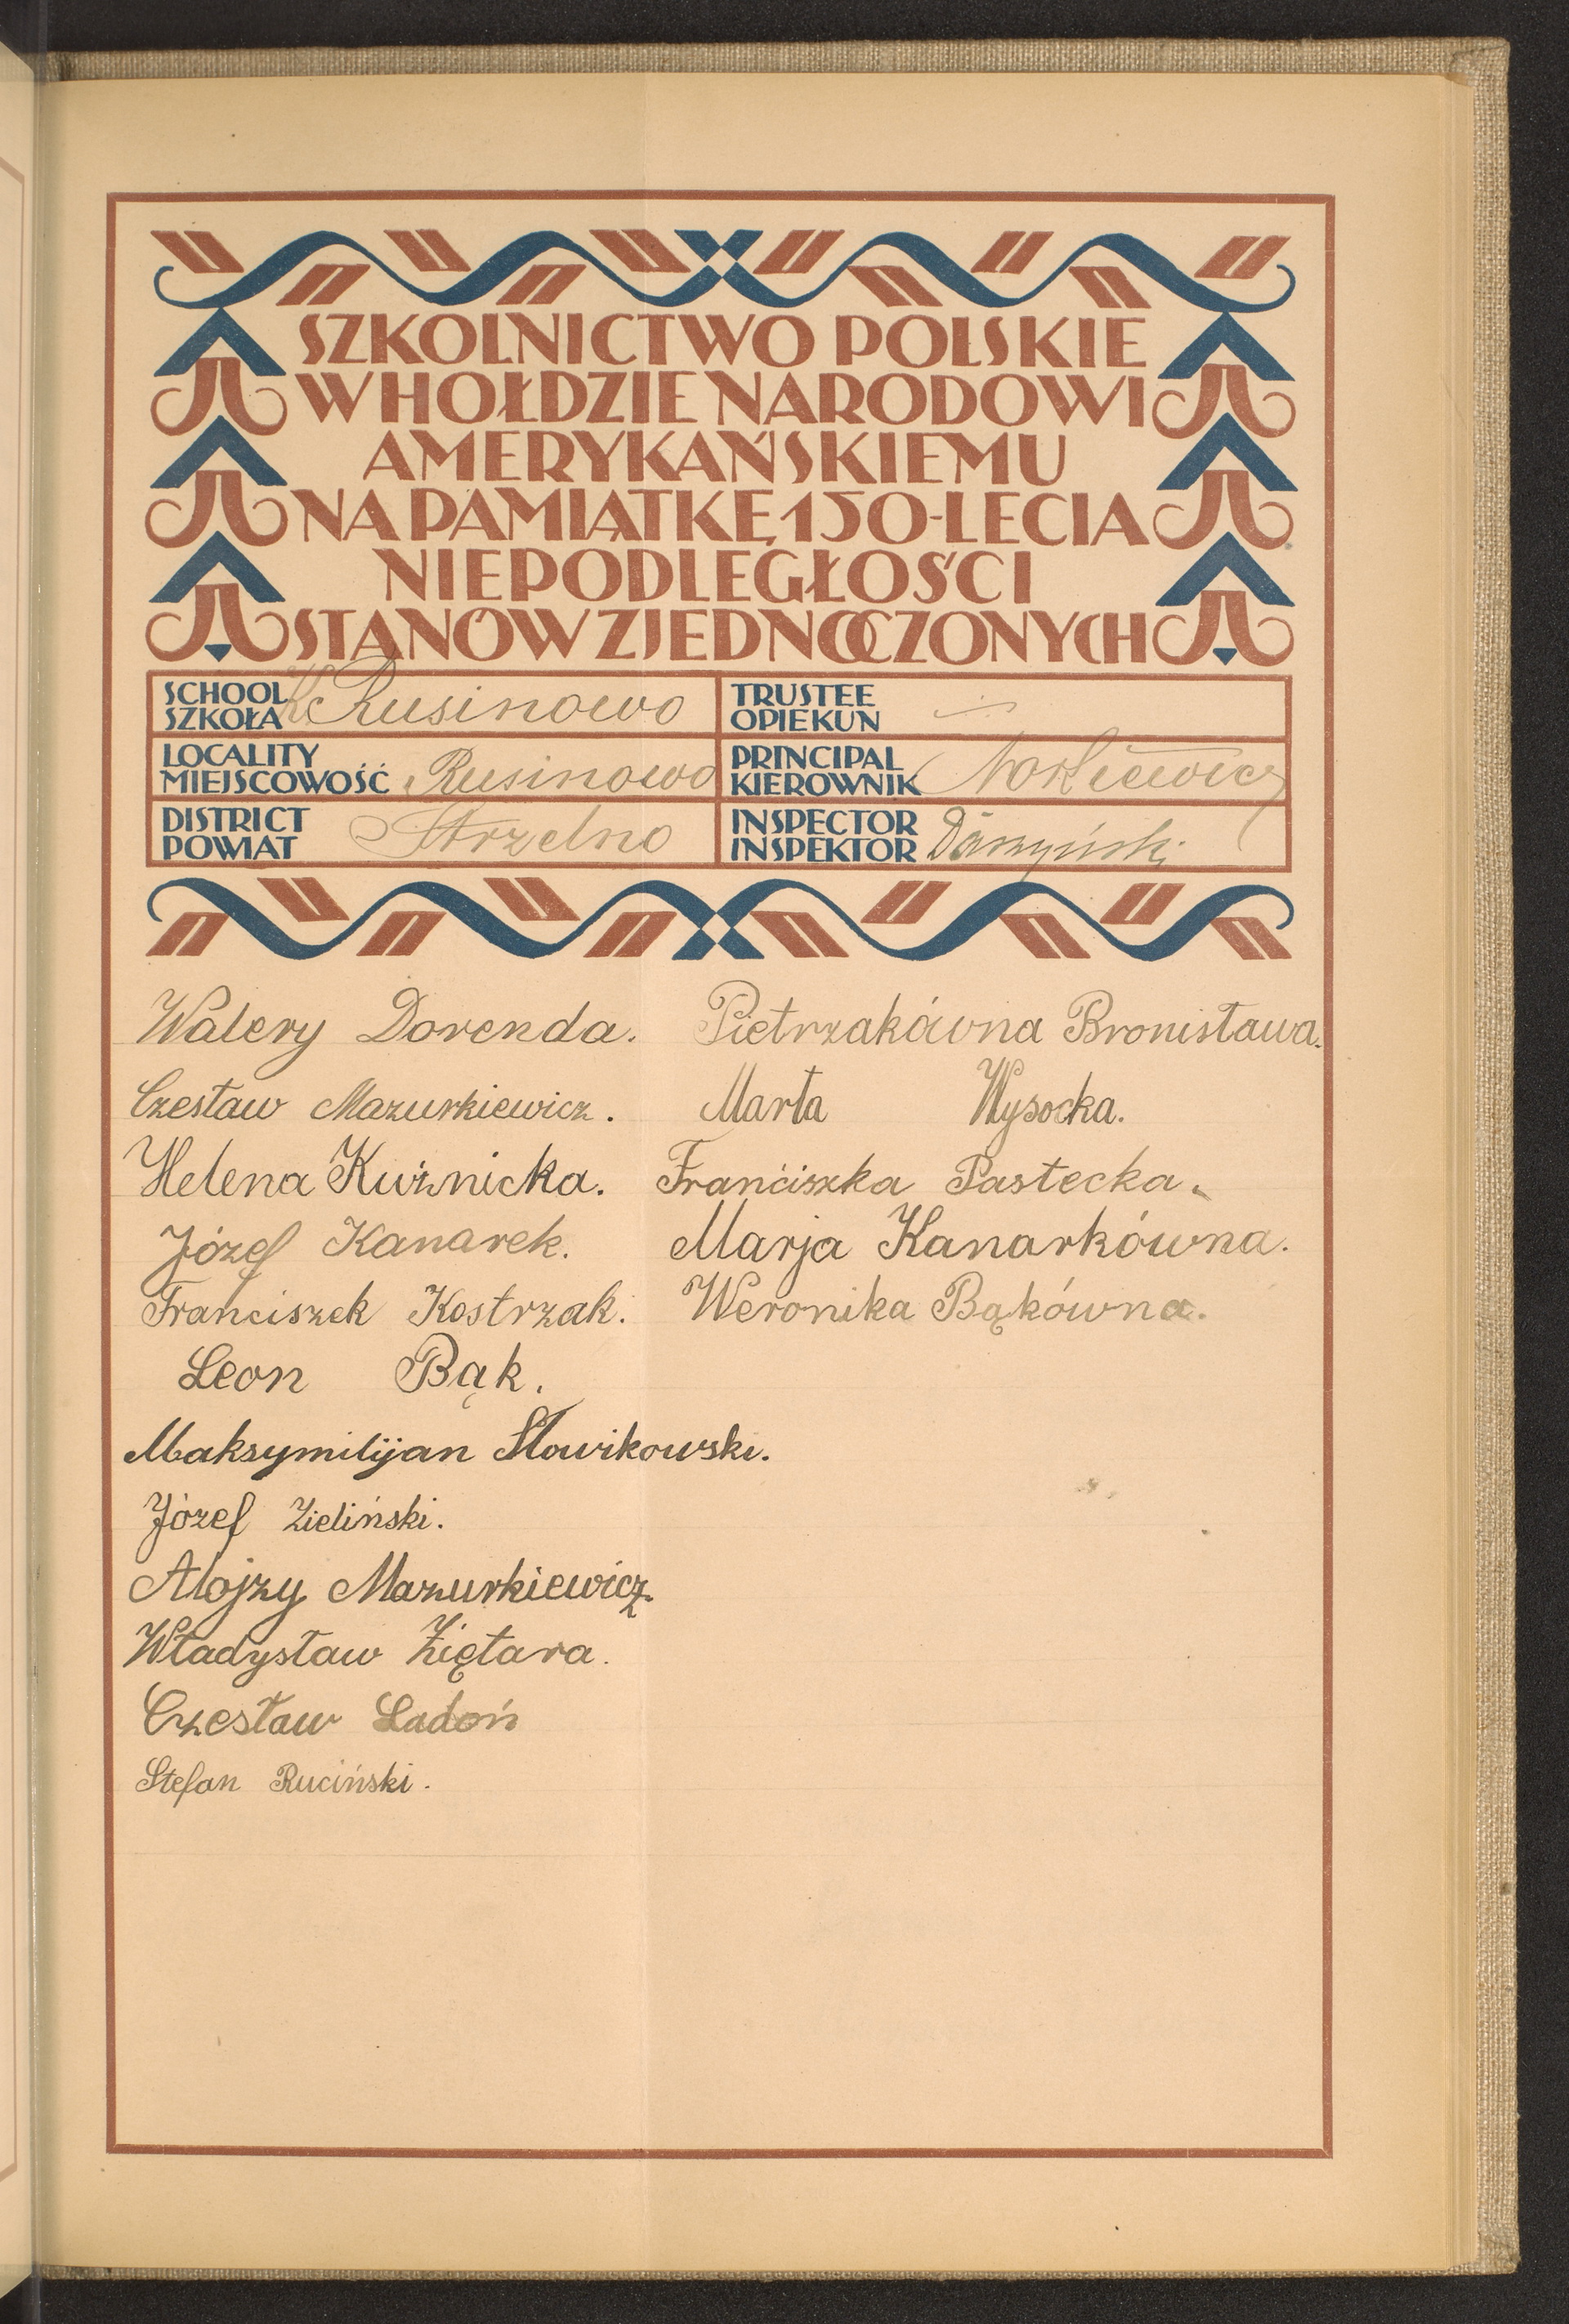 SZKOLNICTWO POLSKIE
W HOŁDZIE NARODOWI
AMERYKAŃSKIEMU
NA PAMIĄTKĘ 150-LECIA
NIEPODLEGŁOŚCI
STANÓW ZJEDNOCZONYCH
SCHOOL
SZKOŁA Rusinowo
TRUSTEE
OPIEKUN —
LOCALITY
MIEJSCOWOŚĆ Rusinowo
PRINCIPAL
KIEROWNIK Norkiewicz
DISTRICT
POWIAT Strzelno
INSPECTOR
INSPEKTOR
Walery Dorenda.
Czesław Mazurkiewicz.
Helena Kuźnicka.
Józef Kanarek.
Franciszek Kostrzak.
Leon Bąk.
Maksymilijan Słowikowski.
Józef Zieliński.
Alojzy Mazurkiewicz.
Władysław Ziętara.
Czesław Ladoń
Stefan Ruciński.
Pietrzakówna Bronisława.
Marta Wysocka.
Franciszka Pastecka.
Marja Kanarkówna.
Weronika Bąkówna.